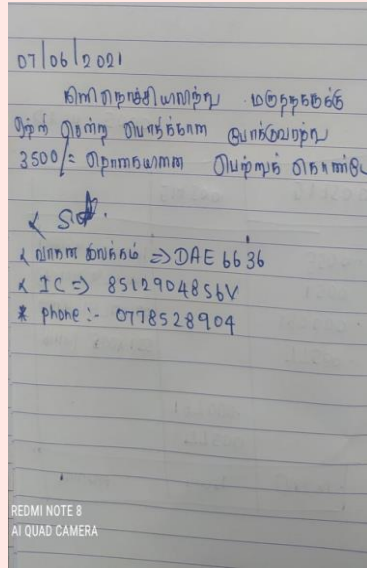 07/06/2021
கிளிநொச்சியிலிருந்து மருதநகருக்கு
சென்ற போக்குவரத்து
3500/= தொகையினை பெற்றுக் கொண்டே
வாகன இலக்கம் => DAE 6636
IC => 8512904856V
* phone :- 0778528904
REDMI NOTE 8
AI QUAD CAMERA